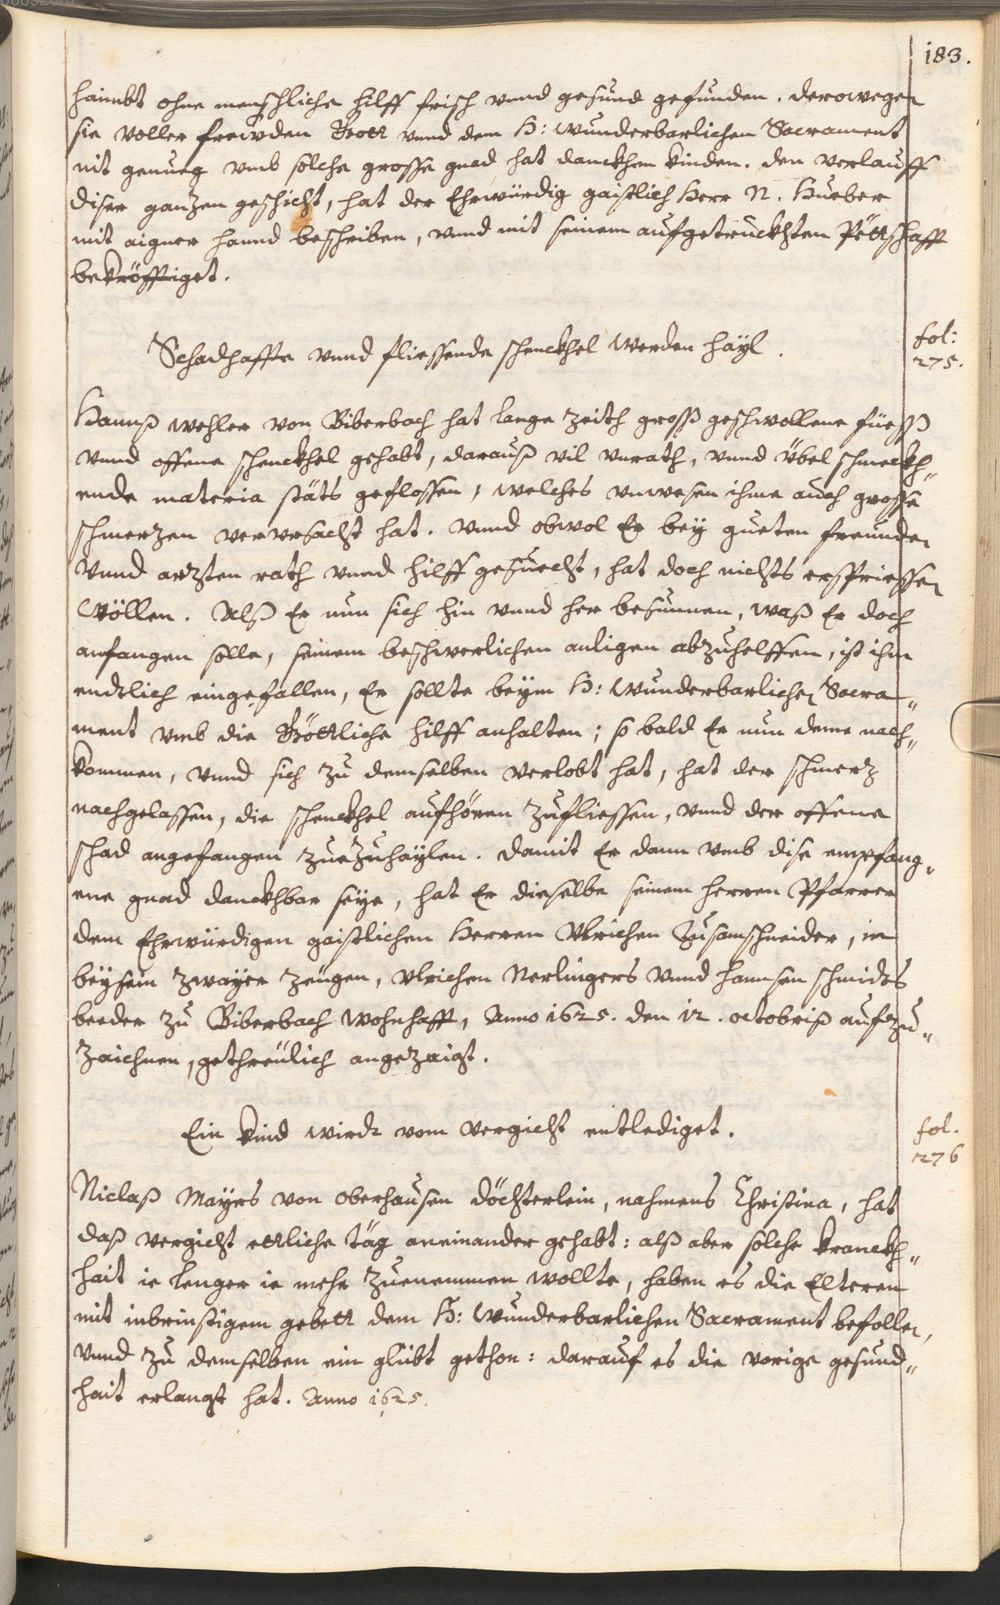 183.
haimbt ohne menschliche hilff frisch vnnd gesund gefunden. derowegen
sie voller frewden Gott vnnd dem H: wunderbarlichen Sacrament
nit genueg vmb solche grosse gnad hat danckhen kinden. den verlauff
diser ganzen geschicht, hat der Ehrwürdig gaistlich Herr N. Hueber
mit aigner hannd beschriben, vnnd mit seinem aufgetruckhten Pettschafft
bekröfftiget.
Schadhaffte vnnd fliessende schenckhel werden hayl.
fol:
275.
Hannß Wehler von Biberbach hat lange zeith gross geschwollene füeß
vnnd offene schenckhel gehabt, darauß vil vnrath, vnnd übel schmeckh„
ende materia stäts geflossen, welches vnwesen ihme auch grosse
schmerzen vervrsacht hat. vnnd obwol Er bey gueten freunden
vnnd arzten rath vnnd hilff gesuecht, hat doch nichts erspriessen
wöllen. Alß Er nun sich hin vnnd her besunnen, waß Er doch
anfangen solle, seinem beschwerlichen anligen abzuhelffen, ist ihm
endtlich eingefallen, Er sollte beym H: wunderbarlichen Sacra„
ment vmb die Göttliche hilff anhalten; so bald Er nun deme nach„
kommen, vnnd sich zu demselben verlobt hat, hat der schmerz
nachgelassen, die schenckhel aufhören zufliessen, vnnd der offene
schad angefangen zuezuhaylen. damit Er dann vmb dise empfang„
ene gnad danckhbar seye, hat Er dieselbe seinem herren Pfarrer
dem Ehrwürdigen gaistlichen Herren Vlrichen Zusamschneider, in
beysein zwayer zeugen, Vlrichen Nerlingers vnnd hannsen schmidts
beeder zu Biberbach wohnhafft, Anno 1625. den 12. octobris aufzu„
zaichnen, gethreülich angezaigt.
Ein kind wirdt vom vergicht entlediget.
fol.
276
Niclaß Mayrs von oberhausen döchterlein, nahmens Christina, hat
daß vergicht ettliche täg aneinander gehabt: alß aber solche kranckh„
hait ie lenger ie mehr zuenemmen wollte, haben es die Elteren
mit inbrinstigem gebett dem H: wunderbarlichen Sacrament befollen,
vnnd zu demselben ein glübt gethon: darauf es die vorige gesund„
hait erlangt hat. Anno 1625.